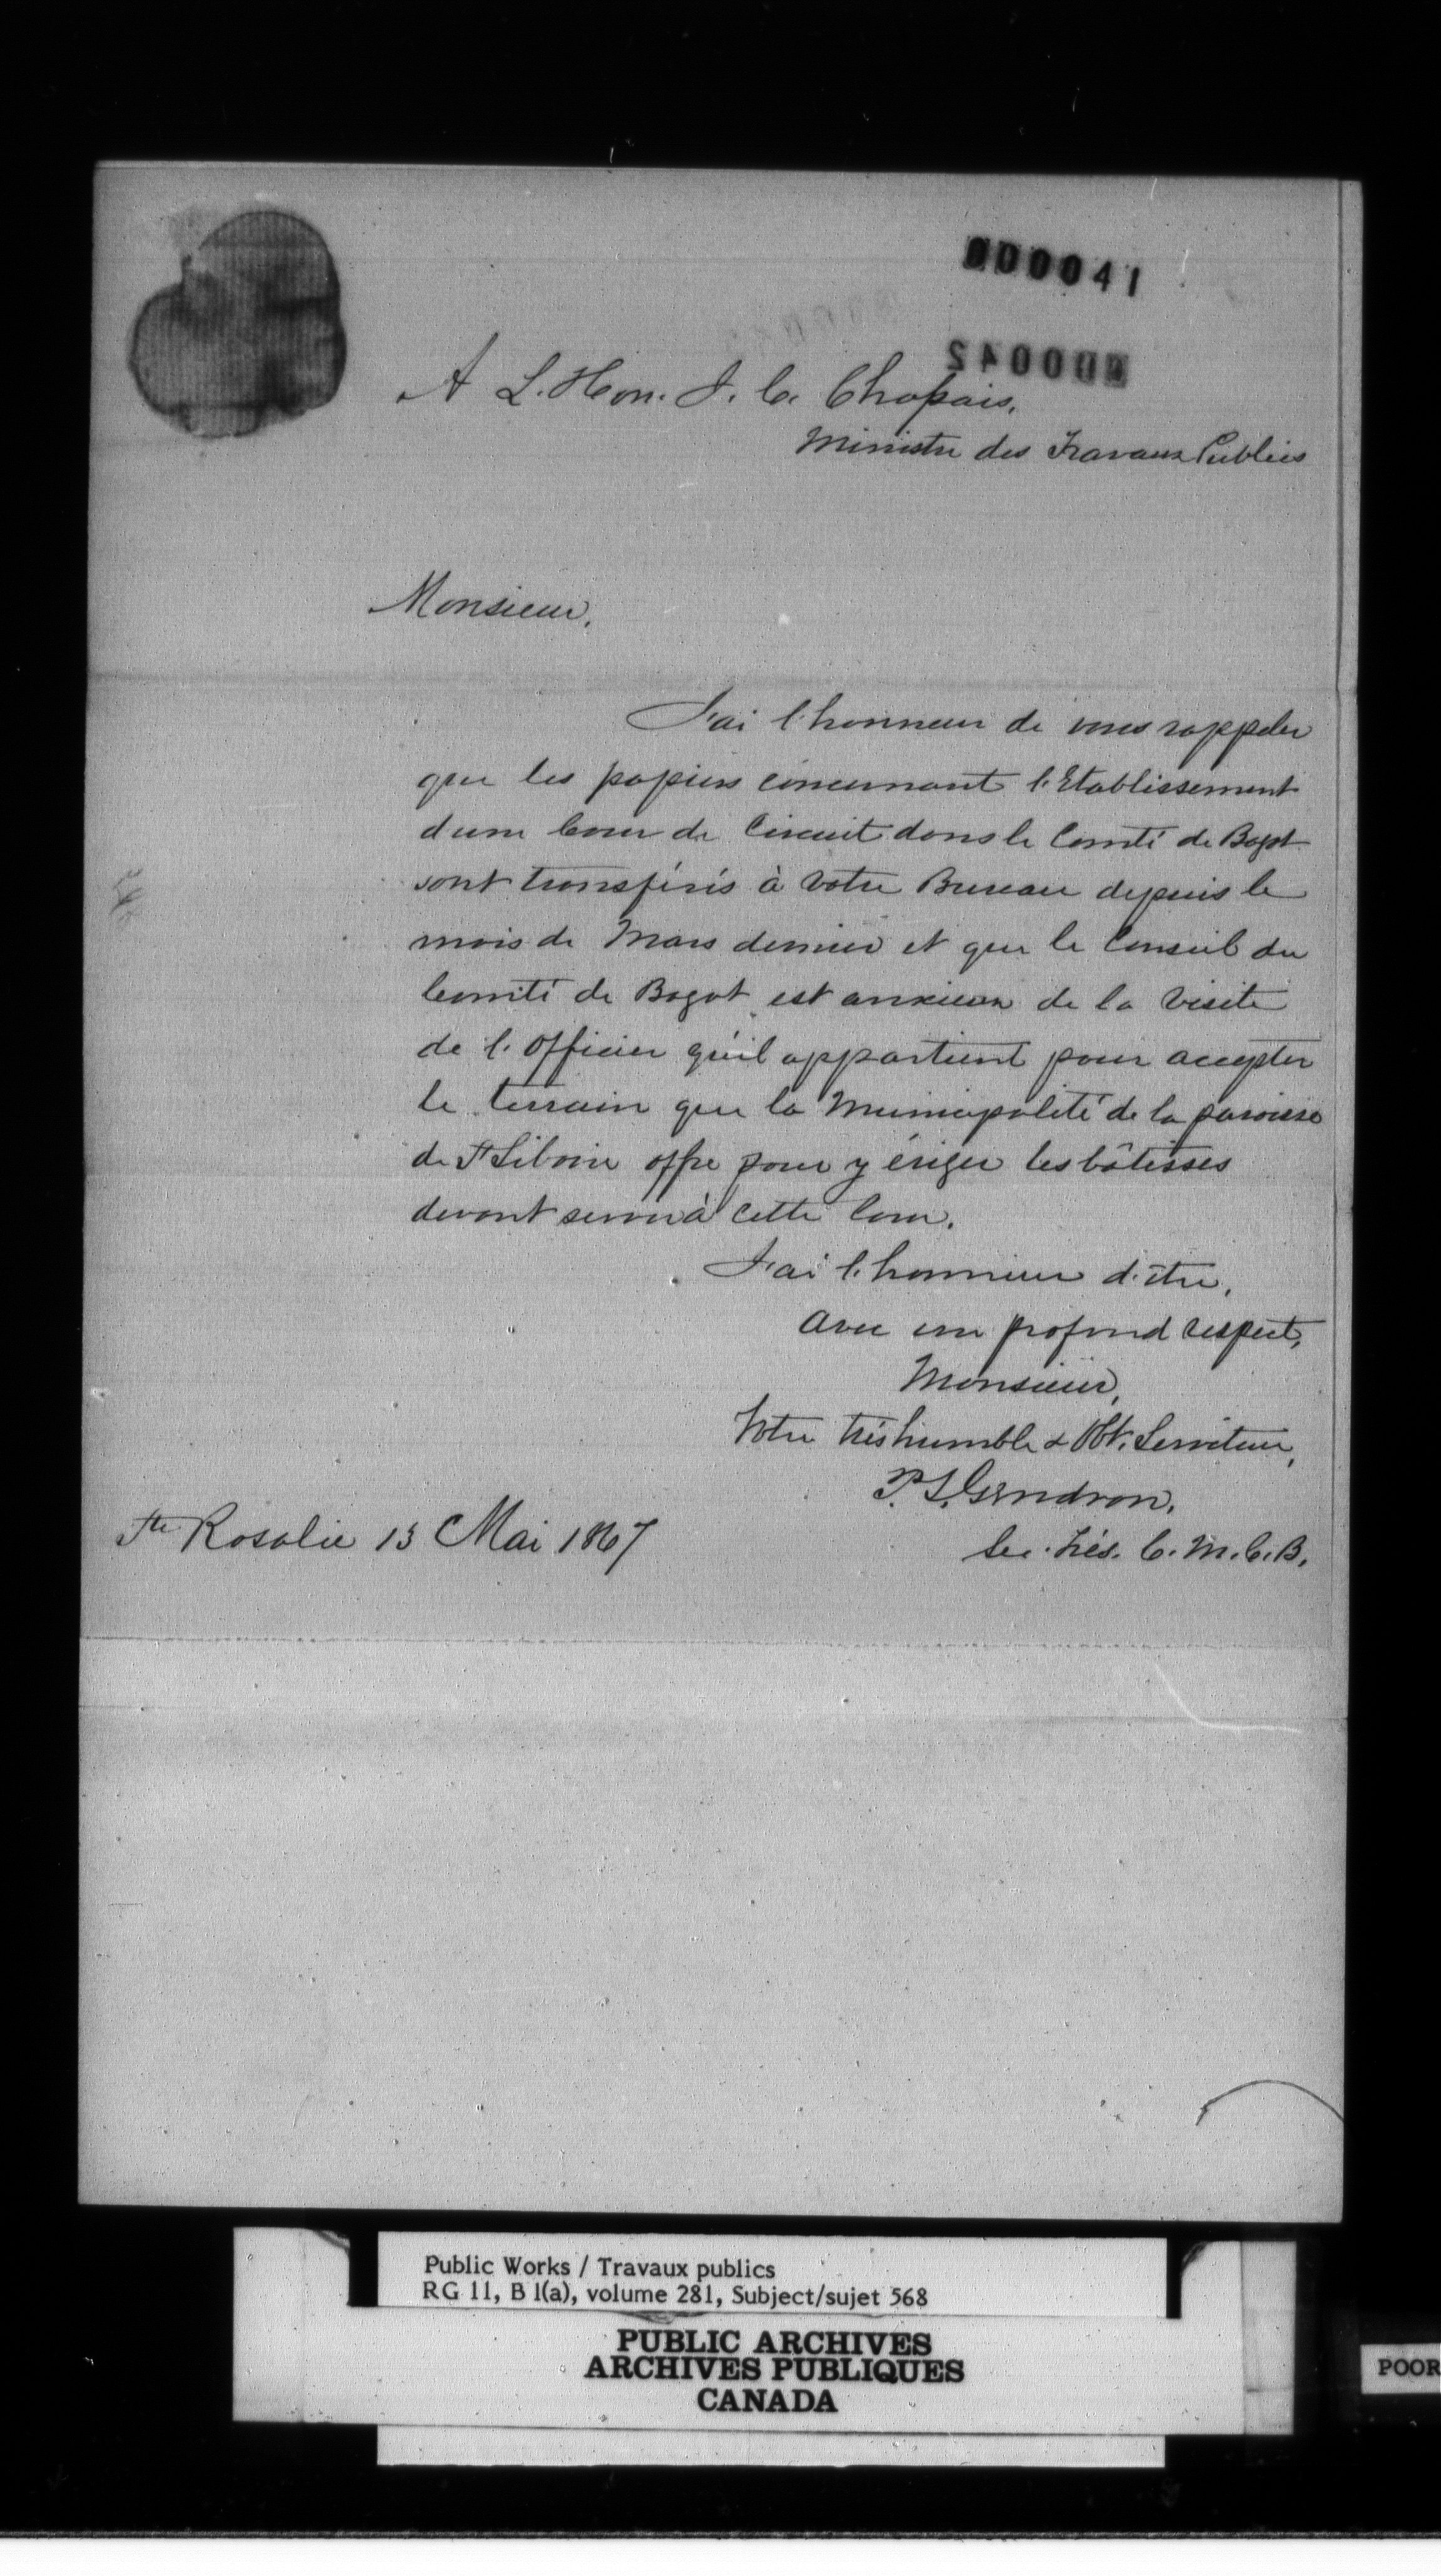 000041
000042
A L. Hon. J. C. Chapais,
Ministre des Travaux Publics
Monsieur,
J'ai l'honneur de vous rappeler
que les papiers concernant l'Etablissement
d'une Cour de Circuit dans le Comté de Bagot
sont transférés à votre Bureau depuis le
mois de Mars dernier et que le Conseil du
Comté de Bagot est anxieux de la visite
de l'Officier qu'il appartient pour accepter
le terrain que la Municipalité de la paroisse
de St Liboire offre pour y ériger les bâtisses
devant servir à cette Cour.
J'ai l'honneur d'être,
avec un profond respect,
Monsieur,
Votre très humble & Obt. Serviteur,
P. S. Gendron,
Sec. Trés. C. M. C. B.
Ste Rosalie 13 Mai 1867
Public Works / Travaux publics
RG 11, B 1(a), volume 281, Subject/sujet 568
PUBLIC ARCHIVES
ARCHIVES PUBLIQUES
CANADA
POOR